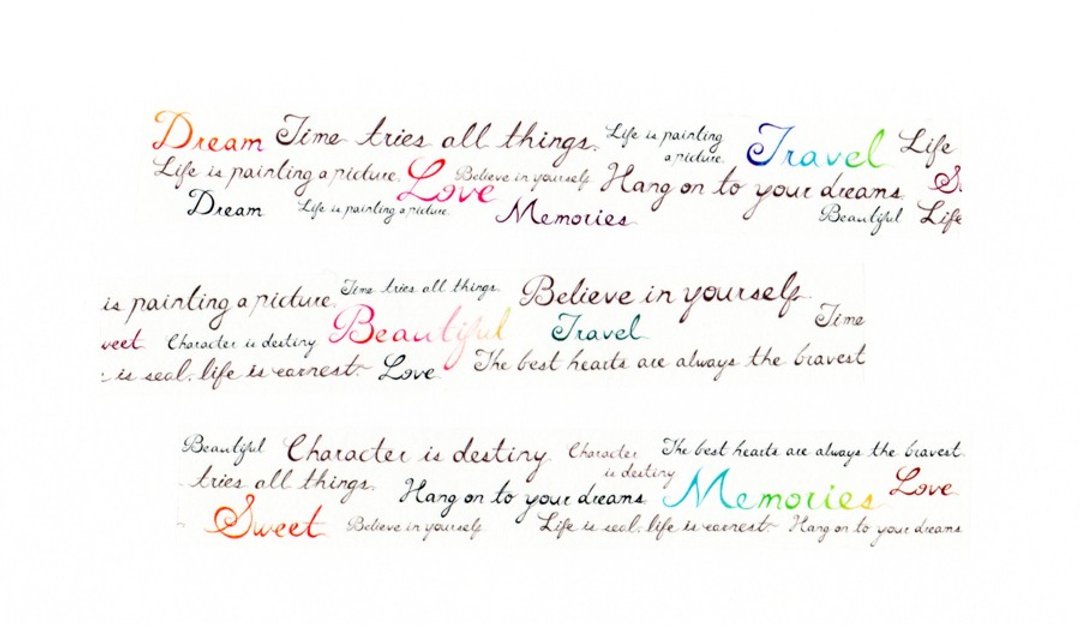 Dream Time tries all things. Life is painting a picture. Travel Life
Life is painting a picture. Love Believe in yourself Hang on to your dreams.
Dream Life is painting a picture. Memories Beautiful Life
is painting a picture. Time tries all things. Believe in yourself.
weet Character is destiny Beautiful Travel Time
is seal. life is earnest. Love The best hearts are always the bravest
Beautiful Character is destiny Character is destiny The best hearts are always the bravest.
tries all things. Hang on to your dreams Memories Love
Sweet Believe in yourself Life is seal. life is earnest. Hang on to your dreams